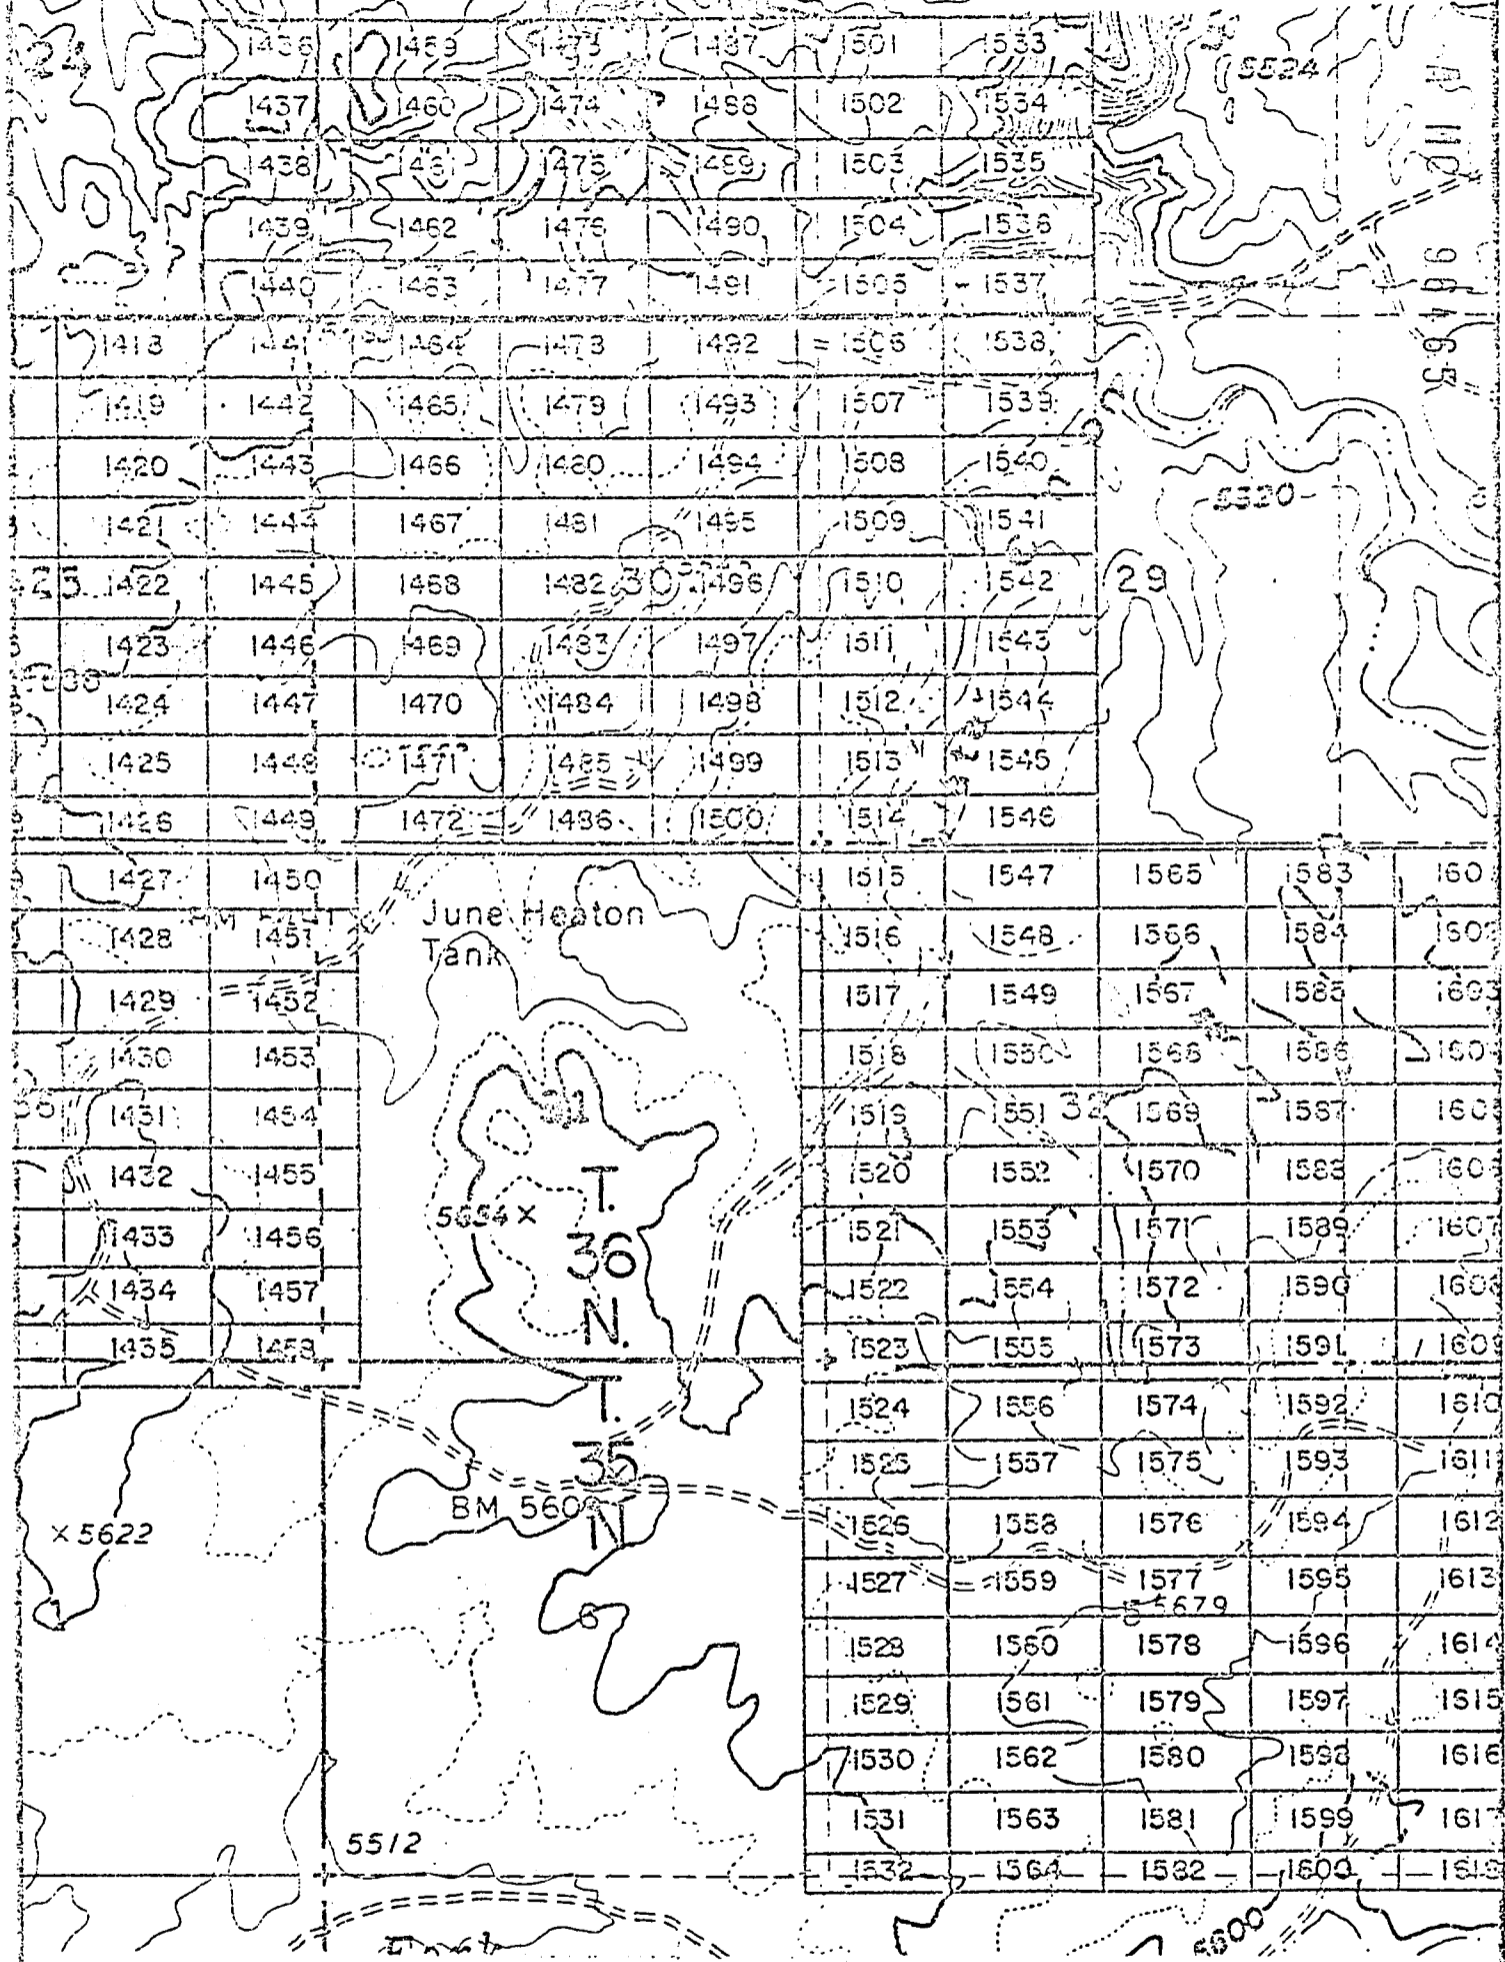 24 1436 1459 1473 1487 1501 1533 5524
1437 1460 1474 1488 1502 1534
1438 1461 1475 1489 1503 1535
1439 1462 1476 1490 1504 1536
1440 1463 1477 1491 1505 1537
96465
1418 1441 1464 1478 1492 1506 1538
1419 1442 1465 1479 1493 1507 1539
1420 1443 1466 1480 1494 1508 1540
5520
1421 1444 1467 1481 1495 1509 1541
25 1422 1445 1468 1482 30 1496 1510 1542 29
1423 1446 1469 1483 1497 1511 1543
1424 1447 1470 1484 1498 1512 1544
1425 1448 1471 1485 1499 1513 1545
1426 1449 1472 1486 1500 1514 1546
1427 1450 1515 1547 1565 1583 160
June Heaton
Tank
1428 1451 1516 1548 1566 1584 1602
1429 1452 1517 1549 1567 1585 1603
1430 1453 1518 1550 1568 1586 160
36 1431 1454 31 1519 1551 32 1569 1587 160
1432 1455 1520 1552 1570 1588 160
T.
36
N.
5654 ×
1433 1456 1521 1553 1571 1589 1607
1434 1457 1522 1554 1572 1590 1608
1435 1458 1523 1555 1573 1591 1609
T.
35
N
1524 1556 1574 1592 1610
1525 1557 1575 1593 1611
BM 560
× 5622
1526 1558 1576 1594 1612
1527 1559 1577 1595 1613
5679
1
6
1528 1560 1578 1596 1614
1529 1561 1579 1597 1615
1530 1562 1580 1598 1616
1531 1563 1581 1599 161
5512
1532 1564 1582 1600 1618
5600